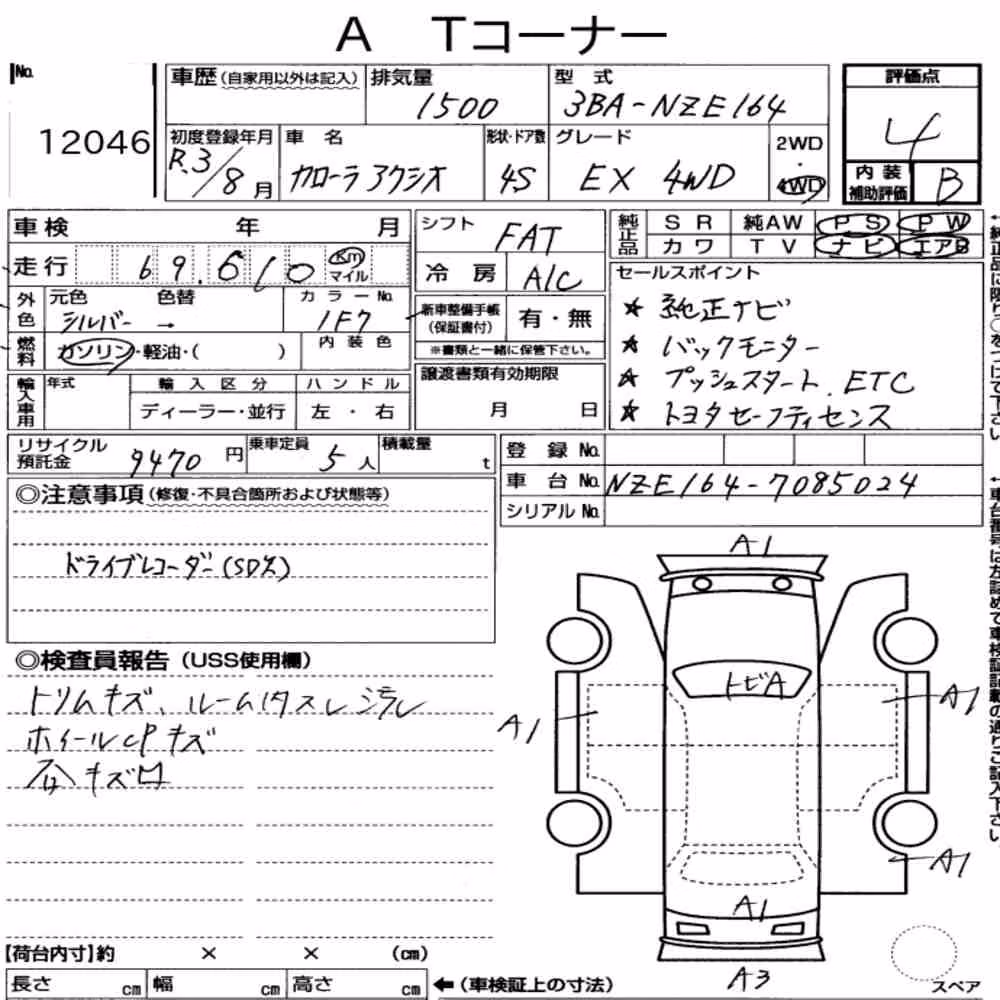 A Tコーナー
No.
12046
車歴(自家用以外は記入)
排気量
1500
型 式
3BA-NZE164
評価点
4
初度登録年月
R.3/8月
車 名
カローラ アクシオ
形状・ドア数
4S
グレード
EX 4WD
2WD
・
4WD
内 装
補助評価
B
車検 年 月
シフト
FAT
純正品
S R 純AW P S P W
カワ T V ナビ エアB
走行
69,610
Km
マイル
冷 房
A/C
セールスポイント
★ 純正ナビ
★ バックモニター
★ プッシュスタート. ETC
★ トヨタセーフティセンス
外色
元色 色替
シルバー →
カラーNo.
1F7
新車整備手帳
(保証書付)
有・無
※書類と一緒に保管下さい。
燃料
ガソリン・軽油・( )
内 装 色
輸入車用
年式
輸 入 区 分
ディーラー・並行
ハ ン ド ル
左 ・ 右
譲渡書類有効期限
月 日
リサイクル
預託金
9470 円
乗車定員
5 人
積載量
t
登 録 No.
車 台 No.
NZE164-7085024
シリアル No.
◎注意事項(修復・不具合箇所および状態等)
ドライブレコーダー(SD欠)
◎検査員報告(USS使用欄)
トリムキズ、ルーム
ホイールCPキズ
キズ凹
A1
トビA
A1
A1
A1
A1
A3
スペア
【荷台内寸】約 × × (cm)
長さ cm
幅 cm
高さ cm
←(車検証上の寸法)